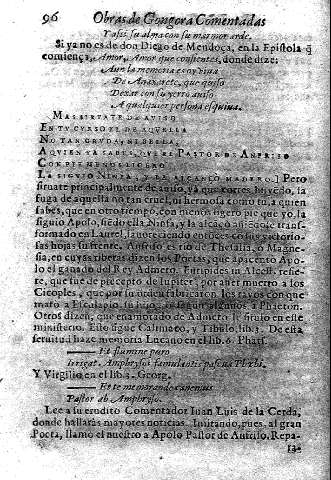 96 Obras de Gongora Comentadas
Y assi su alma con su marmor arde.
Si ya no es de don Diego de Mendoça, en la Epistola q̃
comiença, Amor, Amor que consientes, donde dize:
Aun la memoria es oy viua
De Anaxarete, que quiso
Dexar con su yerro auiso
A qualquier persona esquiua.
MAS SIRVATE DE AVISO
EN TV CVRSO EL DE AQVELLA
NO TAN CRVDA, NI BELLA,
A QVIEN YA SABES QVE EL PASTOR DE ANFRISO
CON PIE MENOS LIGERO
LA SIGVIO NINFA, Y LA ALCANÇO MADERO.] Pero
siruate principalmente de auiso, ya que corres huyendo, la
fuga de aquella no tan cruel, ni hermosa como tu, a quien
sabes, que en otro tiempo, con menos ligero pie que yo, la
siguio Apolo, siendo ella Ninfa, y la alcançò auiendose trans-
formado en Laurel,
las hojas su frente. Anfriso es rio de Thesalia, ò Magne-
sia, en cuyas riberas dizen los Poetas, que apacentò Apo-
lo el ganado del Rey Admeto. Euripides in Alcest. refie-
re, que fue de precepto de Iupiter, por auer muerto a los
Ciclopes, que por su orden fabricaron los rayos con que
matò a Esculapio su hijo, a Phaeton.
Otros dizen, que enamorado de Admeto le siruio en este
ministerio. Esto sigue Calimaco, y Tibulo, lib. 3. De esta
seruitud haze memoria Lucano en el lib. 6. Phars.
Et flumine puro
Irrigat Amphrysos famulantis pascua Phœbi.
Y Virgilio en el lib. 3. Georg.
Et te memorande canemus
Pastor ab Amphryso.
Lee a su erudito Comentador Iuan Luis de la Cerda,
donde hallaràs mayores noticias. Imitando, pues, al gran
Poeta, llamò el nuestro a Apolo Pastor de Anfriso. Repa-